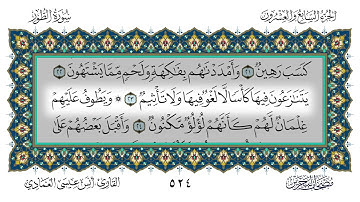 الجزء السابع والعشرون
سورة الطور
كَسَبَ رَهِينٌ ٢١ وَأَمْدَدْنَٰهُم بِفَٰكِهَةٍ وَلَحْمٍ مِّمَّا يَشْتَهُونَ ٢٢
يَتَنَٰزَعُونَ فِيهَا كَأْسًا لَّا لَغْوٌ فِيهَا وَلَا تَأْثِيمٌ ٢٣ ۞ وَيَطُوفُ عَلَيْهِمْ
غِلْمَانٌ لَّهُمْ كَأَنَّهُمْ لُؤْلُؤٌ مَّكْنُونٌ ٢٤ وَأَقْبَلَ بَعْضُهُمْ عَلَىٰ
٥٢٤
القارئ أنس عيسى العمادي